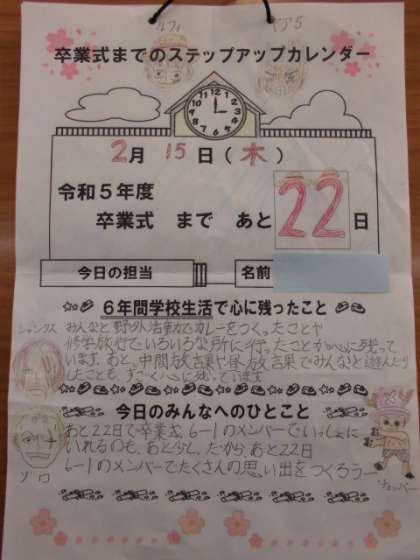 ルフィ
卒業式までのステップアップカレンダー
2月 15日(木)
令和5年度
卒業式 まで あと 22 日
今日の担当
名前
6年間学校生活で心に残ったこと
シャンクス
みんなと野外活動でカレーをつくったことや
修学旅行でいろいろな所に行ったことが心に残って
います。あと、中間放課や昼放課でみんなと遊んだり
したことも、すごく心に残っています。
今日のみんなへのひとこと
あと22日で卒業式 6-1のメンバーでいっしょに
いれるのも、あと少し。だから、あと22日
6-1のメンバーでたくさんの思い出をつくろうー
ゾロ
チョッパー